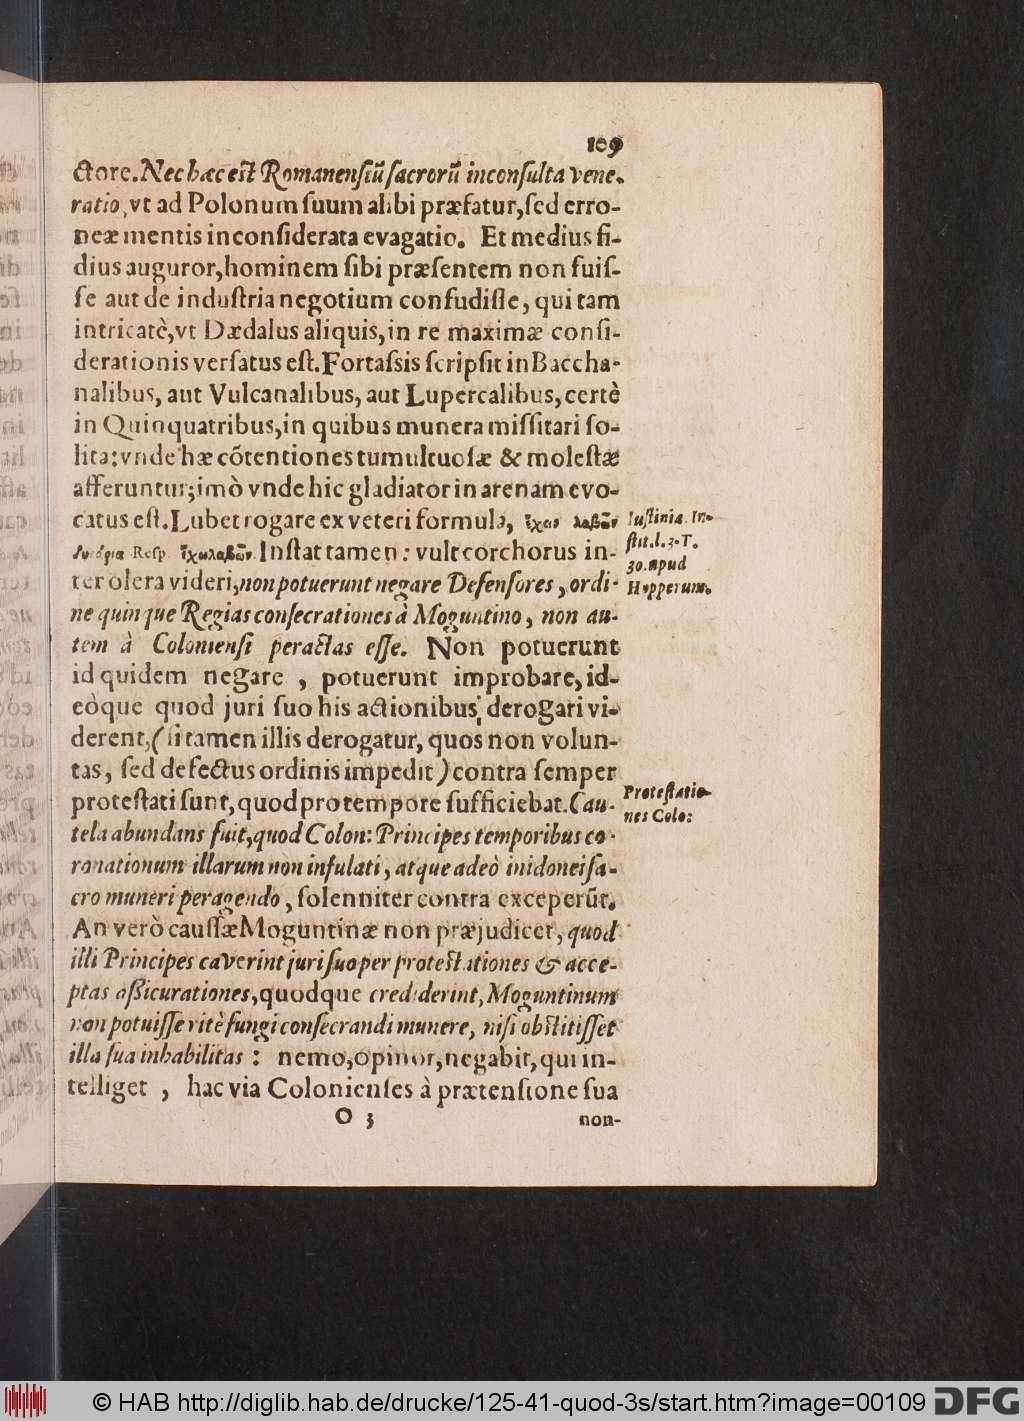 109
ctore. Nec hæc est Romanensiũ sacrorũ inconsulta vene-
ratio, vt ad Polonum suum alibi præfatur, sed erro-
neæ mentis inconsiderata evagatio. Et medius fi-
dius auguror, hominem sibi præsentem non fuis-
se aut de industria negotium confudisse, qui tam
intricatè, vt Dædalus aliquis, in re maximæ consi-
derationis versatus est. Fortassis scripsit in Baccha-
nalibus, aut Vulcanalibus, aut Lupercalibus, certè
in Quinquatribus, in quibus munera missitari so-
lita: vnde hæ cõtentiones tumultuosæ & molestæ
afferuntur; imò vnde hic gladiator in arenam evo-
catus est. Lubet rogare ex veteri formula, ἔχεις λαβὼν
Resp. ἔχω λαβών. Instat tamen: vult corchorus in-
ter olera videri, non potuerunt negare Defensores, ordi-
ne quinque Regias consecrationes à Moguntino, non au-
tem à Coloniensi peractas esse. Non potuerunt
id quidem negare , potuerunt improbare, id-
eòque quod juri suo his actionibus derogari vi-
derent, (si tamen illis derogatur, quos non volun-
tas, sed defectus ordinis impedit) contra semper
protestati sunt, quod pro tempore sufficiebat. Cau-
tela abundans fuit, quod Colon: Principes temporibus co-
ronationum illarum non infulati, atque adeò inidonei sa-
cro muneri peragendo, solenniter contra exceperũt.
An verò caussæ Moguntinæ non præjudicet, quod
illi Principes caverint juri suo per protestationes & acce-
ptas aßicurationes, quodque crediderint, Moguntinum
non potuisse ritè fungi consecrandi munere, nisi obstitisset
illa sua inhabilitas : nemo, opinor, negabit, qui in-
telliget , hac via Colonienses à prætensione sua
O 3
non-
Iustinia. In-
stit. l. 3. T.
30. apud
Hopperum.
Protestatio-
nes Colo:
© HAB http://diglib.hab.de/drucke/125-41-quod-3s/start.htm?image=00109
DFG